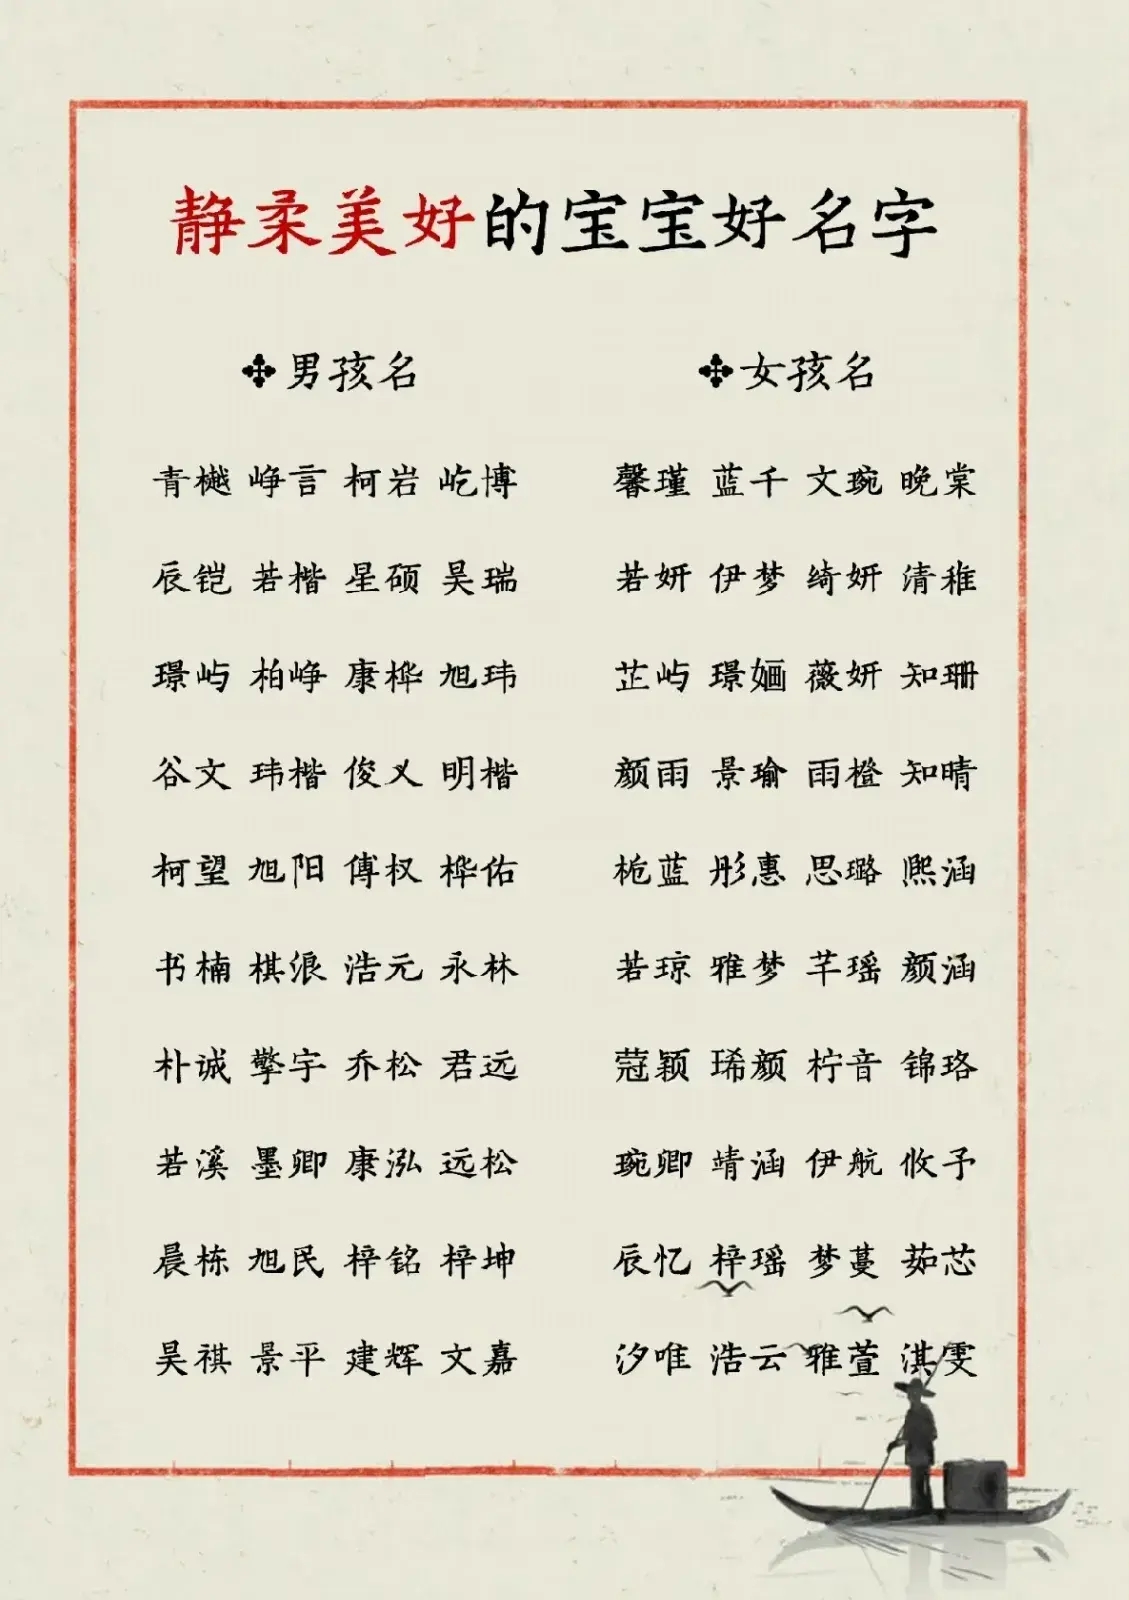 静柔美好的宝宝好名字
男孩名
青樾 峥言 柯岩 屹博
辰铠 若楷 星硕 昊瑞
璟屿 柏峥 康桦 旭玮
谷文 玮楷 俊义 明楷
柯望 旭阳 傅权 桦佑
书楠 棋浪 浩元 永林
朴诚 擎宇 乔松 君远
若溪 墨卿 康泓 远松
晨栋 旭民 梓铭 梓坤
昊祺 景平 建辉 文嘉
女孩名
馨瑾 蓝千 文琬 晚棠
若妍 伊梦 绮妍 清稚
芷屿 璟婳 薇妍 知珊
颜雨 景瑜 雨橙 知晴
栀蓝 彤惠 思璐 熙涵
若琼 雅梦 芊瑶 颜涵
蔻颖 琋颜 柠音 锦珞
琬卿 靖涵 伊航 攸予
辰忆 梓瑶 梦蔓 茹芯
汐唯 浩云 雅萱 淇雯